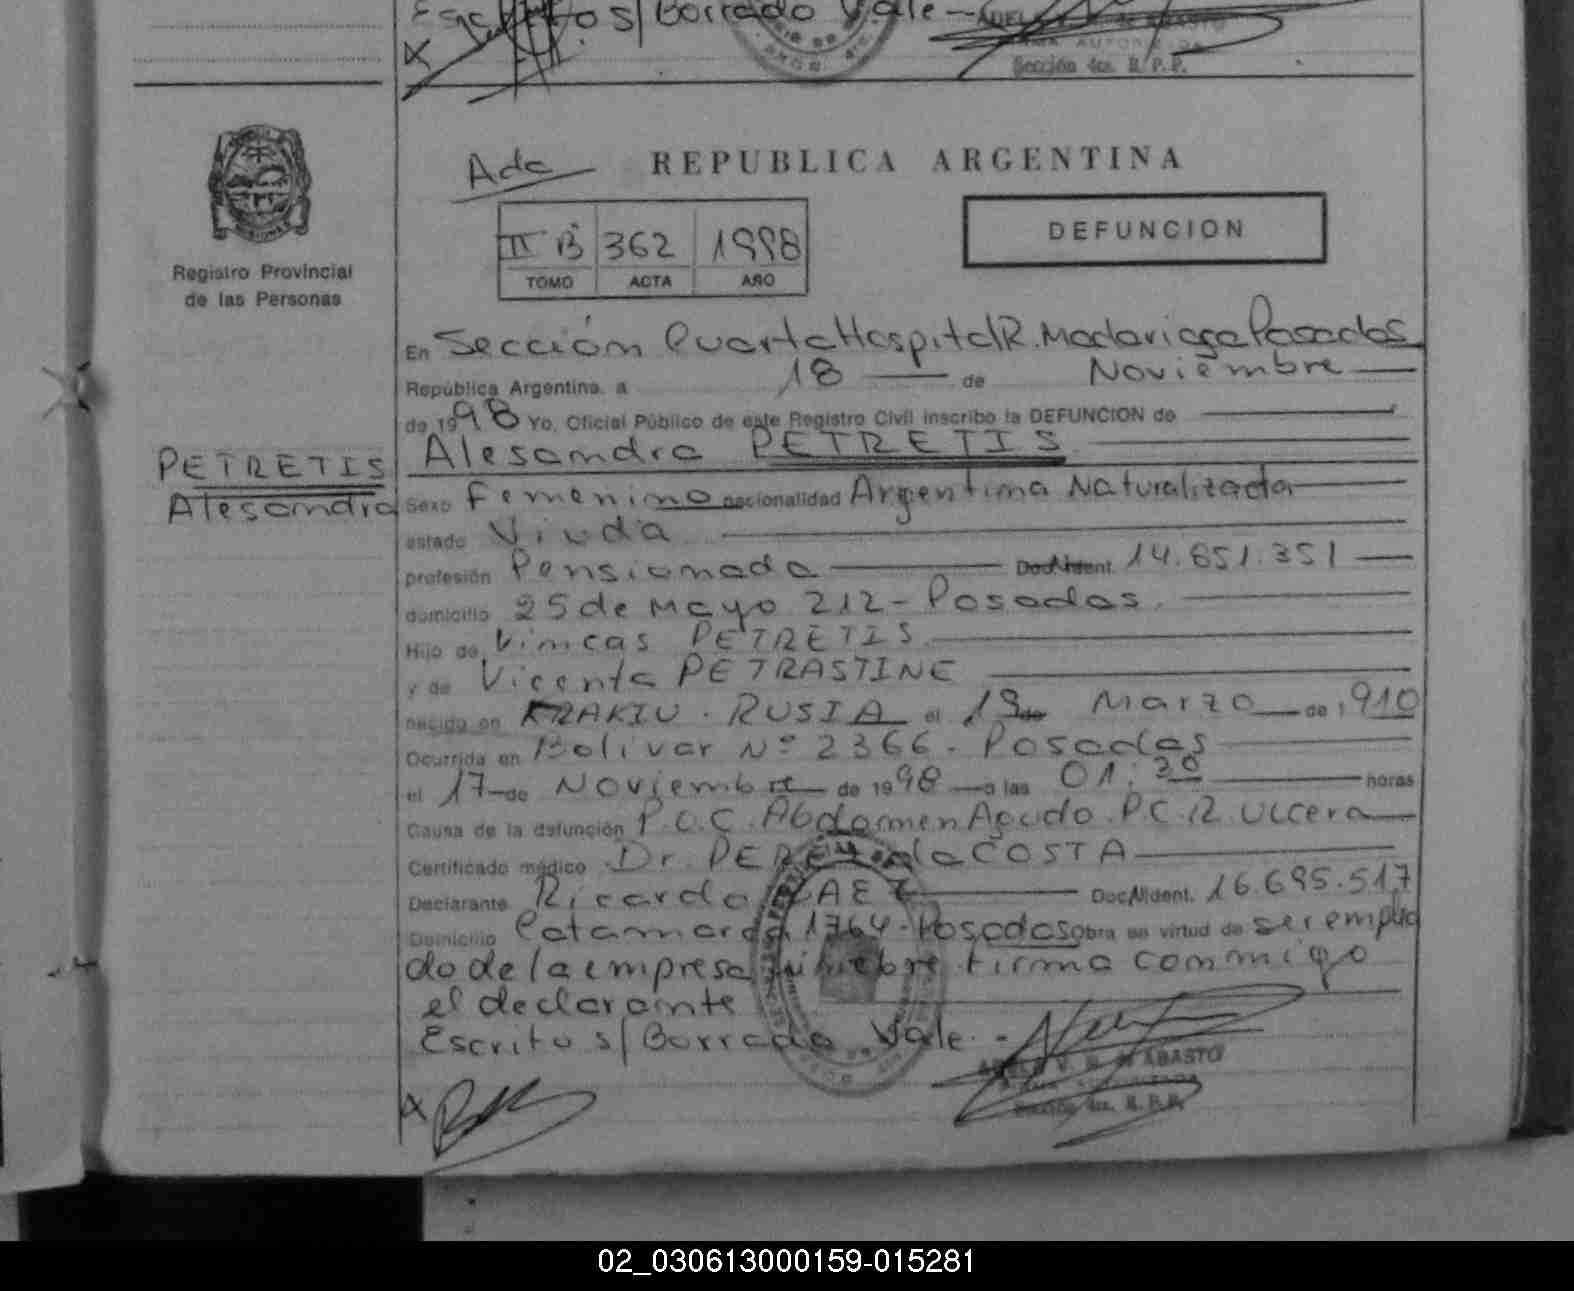 Escritos s/Borrado Vale -
Sección 4ta. R.P.P.
Registro Provincial
de las Personas
PETRETIS
Alesandra
REPUBLICA ARGENTINA
II B 362 1998
TOMO ACTA AÑO
DEFUNCION
En Sección Cuarta Hospital R. Madariaga Posadas
República Argentina, a 18 de Noviembre
de 1998 Yo, Oficial Público de este Registro Civil inscribo la DEFUNCION de
Alesandra PETRETIS
Sexo Femenino nacionalidad Argentina Naturalizada
estado Viuda
profesión Pensionada Doc. Ident. 14.851.351
domicilio 25 de Mayo 212 - Posadas.
Hijo de Vincas PETRETIS
y de Vicenta PETRASTINE
nacido en KRAKIU. RUSIA el 19 de Marzo de 1910
Ocurrida en Bolivar Nº 2366 - Posadas
el 17 de Noviembre de 1998 a las 01:30 horas
Causa de la defunción P.O.C. Abdomen Agudo. P.C.R. Ulcera
Certificado médico Dr. PEREYRA da COSTA
Declarante Ricardo Doc. Ident. 16.695.517
Domicilio Catamarca 1764 - Posadas Obra en virtud de ser emplea
do de la empresa funebre firma conmigo
el declarante
Escrito s/Borrado Vale. -
ABASTO
Sección 4ta. R.P.P.
02_030613000159-015281